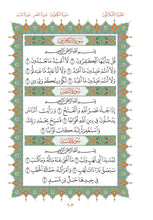 سُورَةُ الكَافِرُونَ
بِسْمِ اللَّهِ الرَّحْمَٰنِ الرَّحِيمِ
قُلْ يَٰٓأَيُّهَا ٱلْكَٰفِرُونَ ١ لَآ أَعْبُدُ مَا تَعْبُدُونَ ٢
وَلَآ أَنتُمْ عَٰبِدُونَ مَآ أَعْبُدُ ٣ وَلَآ أَنَا۠ عَابِدٌ مَّا عَبَدتُّمْ ٤
وَلَآ أَنتُمْ عَٰبِدُونَ مَآ أَعْبُدُ ٥ لَكُمْ دِينُكُمْ وَلِىَ دِينِ ٦
سُورَةُ النَّصْرِ
بِسْمِ اللَّهِ الرَّحْمَٰنِ الرَّحِيمِ
إِذَا جَآءَ نَصْرُ ٱللَّهِ وَٱلْفَتْحُ ١ وَرَأَيْتَ ٱلنَّاسَ
يَدْخُلُونَ فِى دِينِ ٱللَّهِ أَفْوَاجًا ٢ فَسَبِّحْ بِحَمْدِ رَبِّكَ
وَٱسْتَغْفِرْهُ إِنَّهُۥ كَانَ تَوَّابًۢا ٣
سُورَةُ المَسَدِ
بِسْمِ اللَّهِ الرَّحْمَٰنِ الرَّحِيمِ
تَبَّتْ يَدَآ أَبِى لَهَبٍ وَتَبَّ ١ مَآ أَغْنَىٰ عَنْهُ مَالُهُۥ وَمَا كَسَبَ ٢
سَيَصْلَىٰ نَارًا ذَاتَ لَهَبٍ ٣ وَٱمْرَأَتُهُۥ حَمَّالَةَ ٱلْحَطَبِ ٤
فِى جِيدِهَا حَبْلٌ مِّن مَّسَدٍۭ ٥
٦٠٣